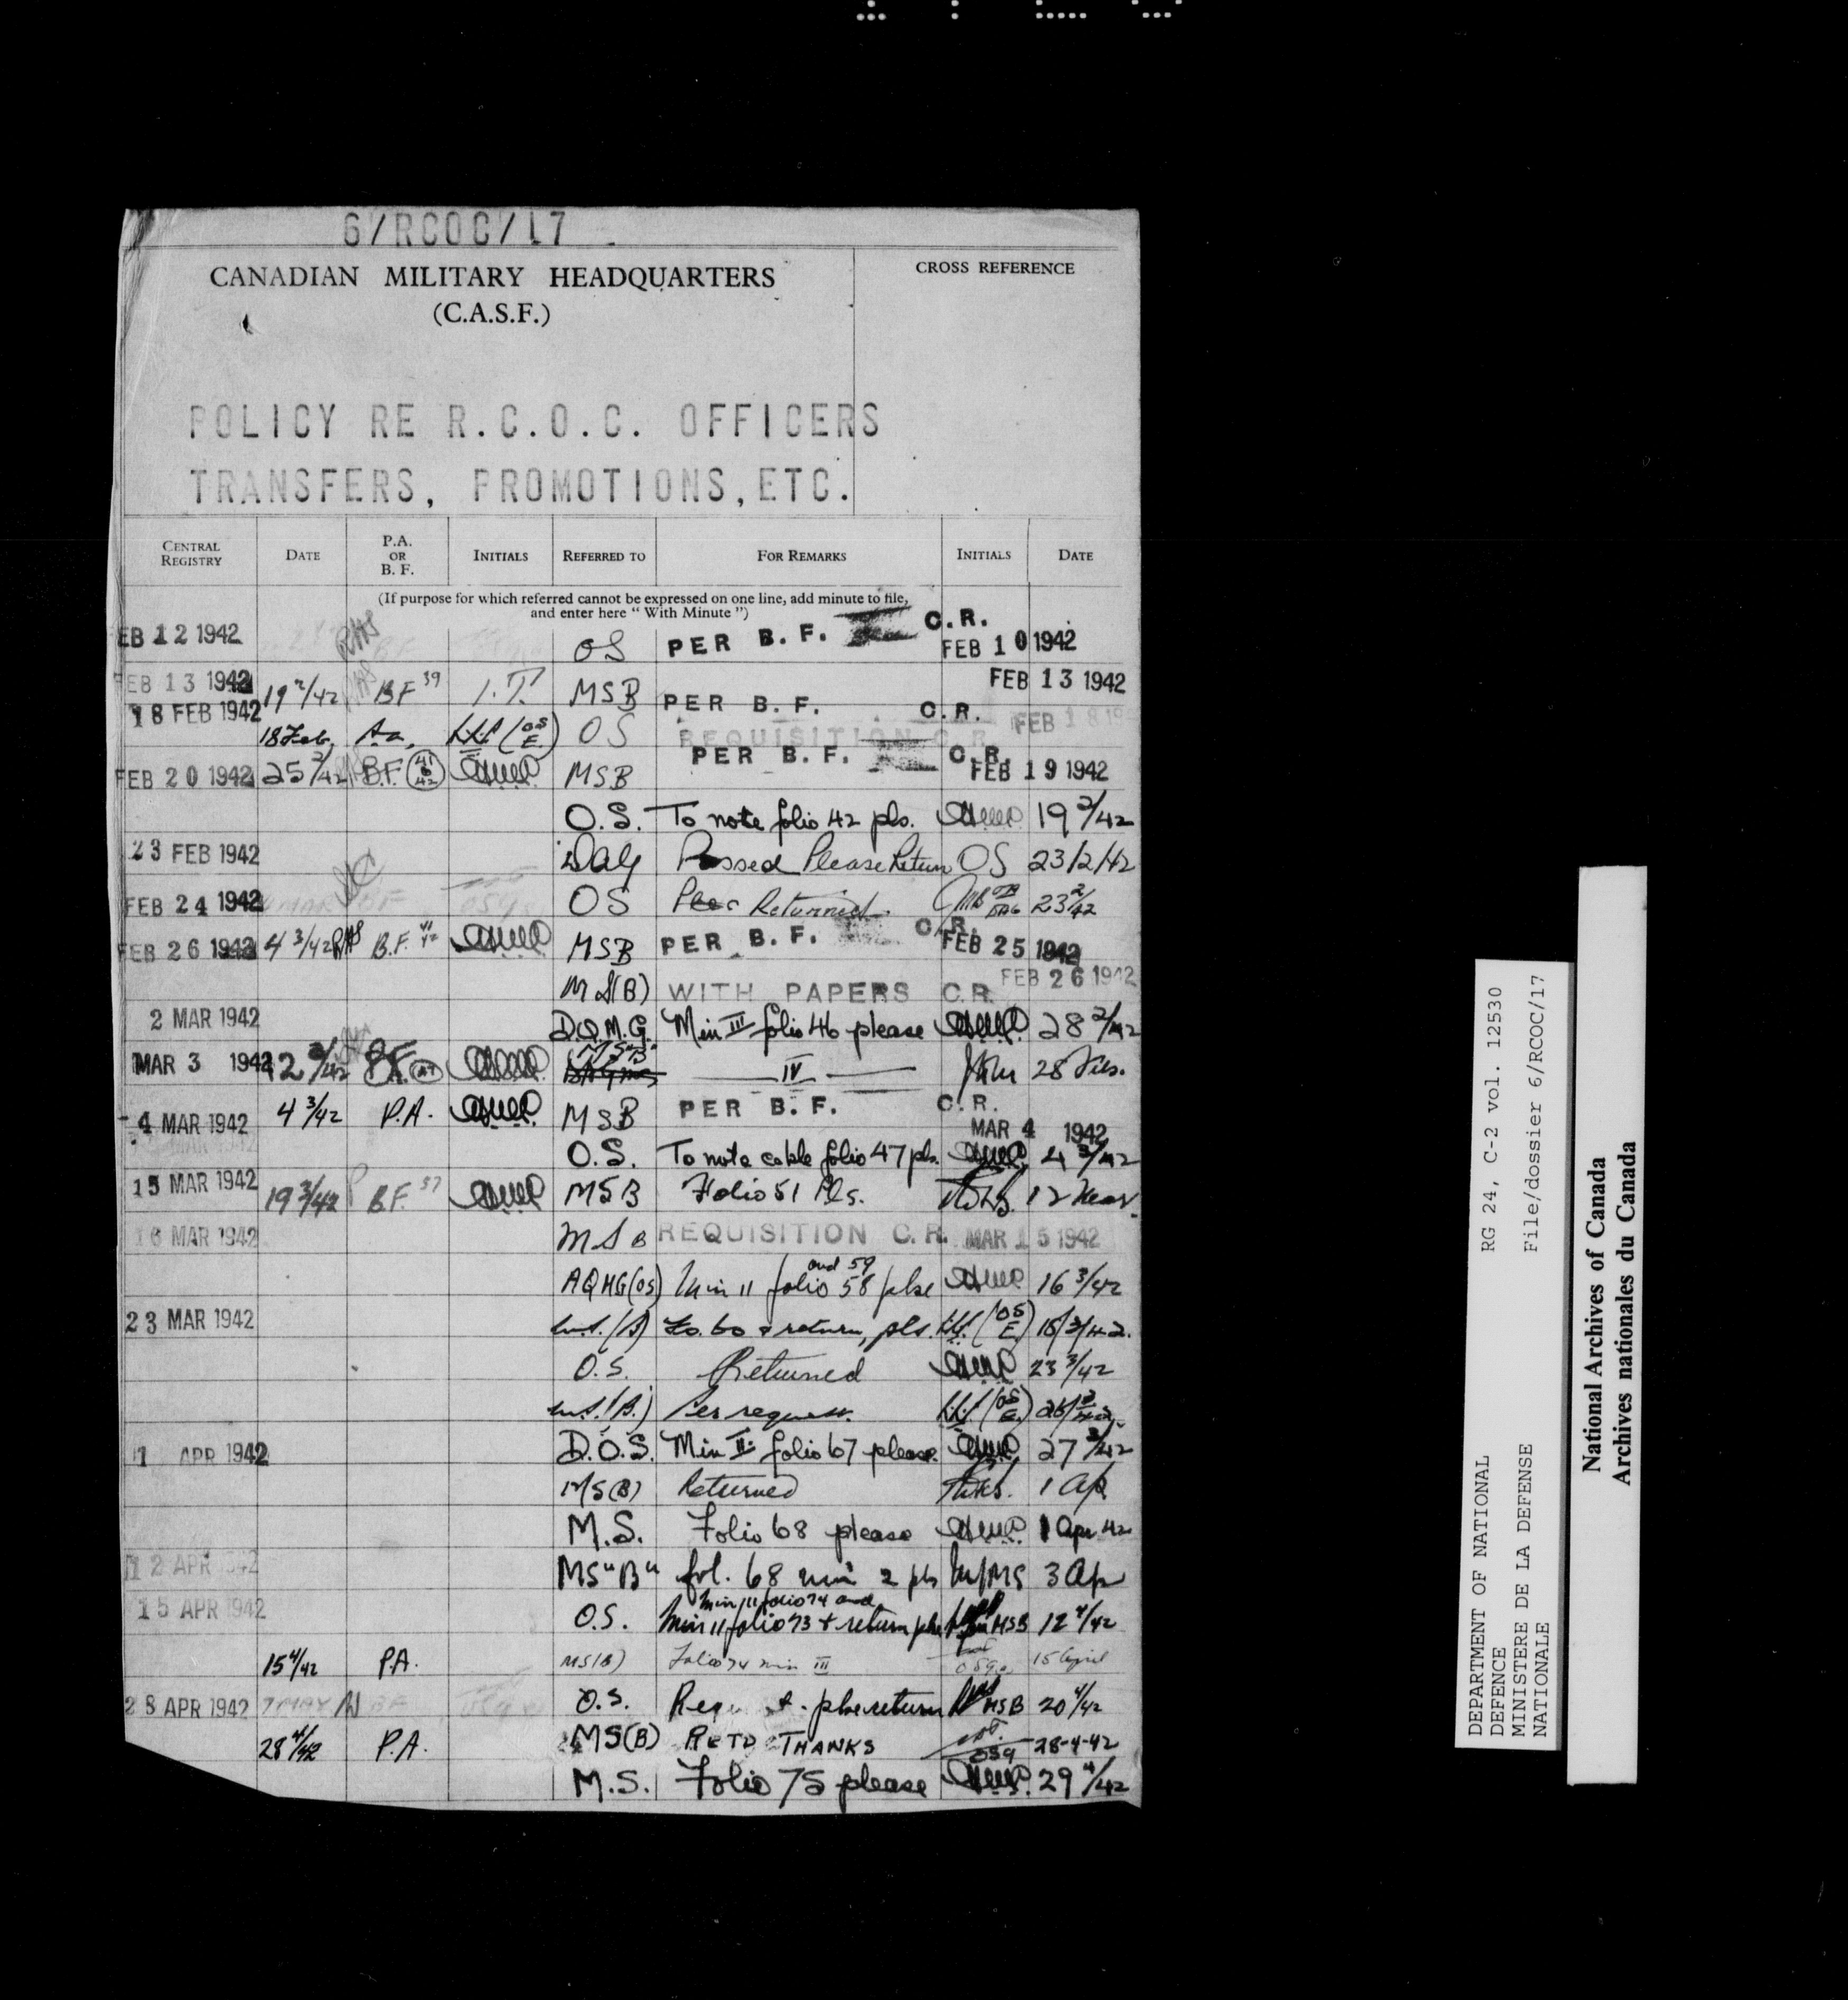 6/RCOC/17
CANADIAN MILITARY HEADQUARTERS
(C.A.S.F.)
CROSS REFERENCE
POLICY RE R.C.O.C. OFFICERS
TRANSFERS, PROMOTIONS, ETC.
CENTRAL REGISTRY DATE P.A. OR B. F. INITIALS REFERRED TO FOR REMARKS INITIALS DATE
(If purpose for which referred cannot be expressed on one line, add minute to file,
and enter here " With Minute ")
EB 12 1942 OS PER B. F. C.R. FEB 10 1942
FEB 13 1942 19 2/42 BF 39 I.T. MSB PER B. F. C.R. FEB 13 1942
18 FEB 1942 18 Feb. OS REQUISITION C.R. FEB 18 19
FEB 20 1942 25 2/42 B.F. 41 & 42 MSB PER B. F. C.R. FEB 19 1942
O.S. To note folio 42 pls. 19 2/42
23 FEB 1942 Passed Please Return OS 23/2/42
FEB 24 1942 OS Returned. 23 2/42
FEB 26 1942 4 3/42 B.F. MSB PER B. F. C.R. FEB 25 1942
MS(B) WITH PAPERS C.R. FEB 26 1942
2 MAR 1942 D.Q.M.G. Min III folio 46 please 28 2/42
MAR 3 1942 "MSB" IV 28 Feb.
4 MAR 1942 4 3/42 P.A. MSB PER B. F. C.R. MAR 4 1942
O.S. To note cable folio 47 pls. 4 3/42
15 MAR 1942 19 3/42 B.F. 57 MSB Folio 51 Pls. 12 Mar.
16 MAR 1942 MSB REQUISITION C.R. MAR 15 1942
AQMG(OS) Min 11 folio 58 and 59 plse 16 3/42
23 MAR 1942 Fo. 60 & return, pls. (OS E.)
O.S. Returned 23 3/42
Per request. (OS E.)
1 APR 1942 D.O.S. Min II folio 67 please. 27 3/42
MS(B) Returned 1 Ap.
M.S. Folio 68 please 1 Apr 42
12 APR 1942 MS "B" fol. 68 min 2 pls 3 Ap
15 APR 1942 O.S. Min 11 folio 74 and
Min 11 folio 73 & return plse MSB 12 4/42
15 4/42 P.A. MS(B) Folio 74 min III 15 April
28 APR 1942 7 MAY BF O.S. plse return MSB 20 4/42
28 4/42 P.A. MS(B) RETD THANKS OS9 28-4-42
M.S. Folio 75 please 29 4/42
DEPARTMENT OF NATIONAL RG 24, C-2 vol. 12530
DEFENCE
MINISTERE DE LA DEFENSE File/dossier 6/RCOC/17
NATIONALE
National Archives of Canada
Archives nationales du Canada